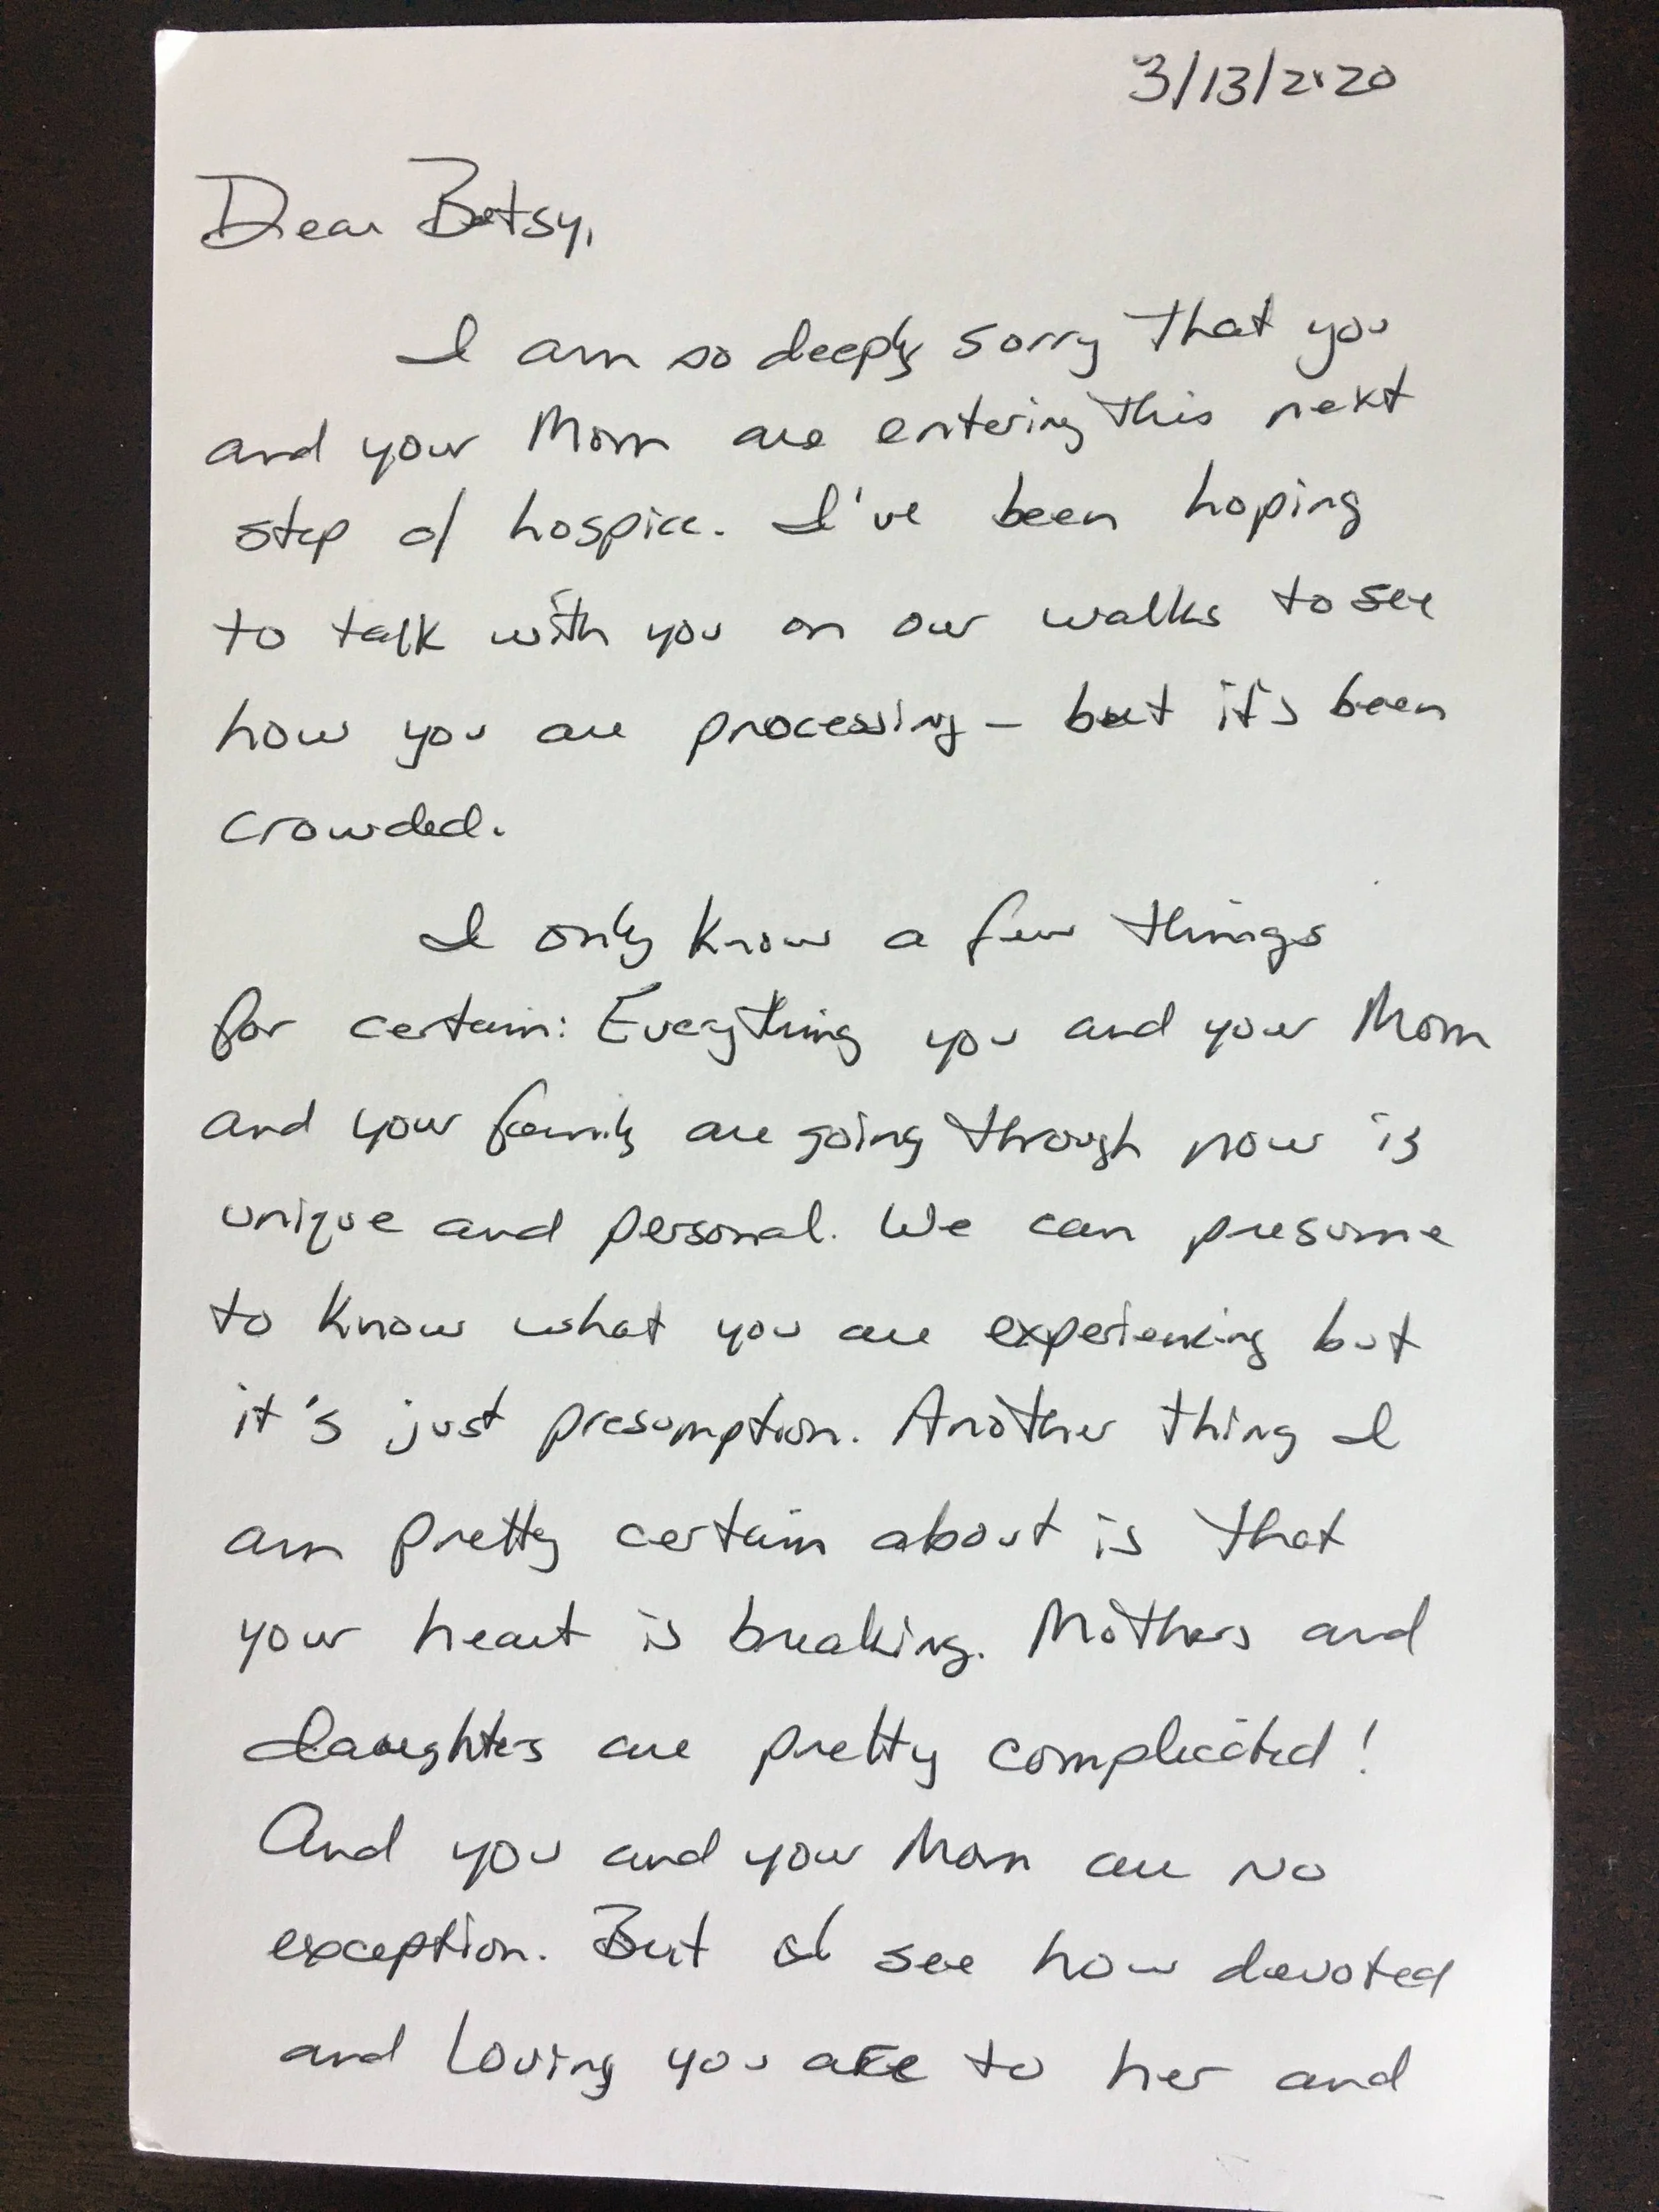 3/13/2020
Dear Betsy,
I am so deeply sorry that you
and your Mom are entering this next
step of hospice. I've been hoping
to talk with you on our walks to see
how you are processing – but it's been
crowded.
I only know a few things
for certain: Everything you and your Mom
and your family are going through now is
unique and personal. We can presume
to know what you are experiencing but
it's just presumption. Another thing I
am pretty certain about is that
your heart is breaking. Mothers and
daughters are pretty complicated!
And you and your Mom are no
exception. But I see how devoted
and loving you are to her and